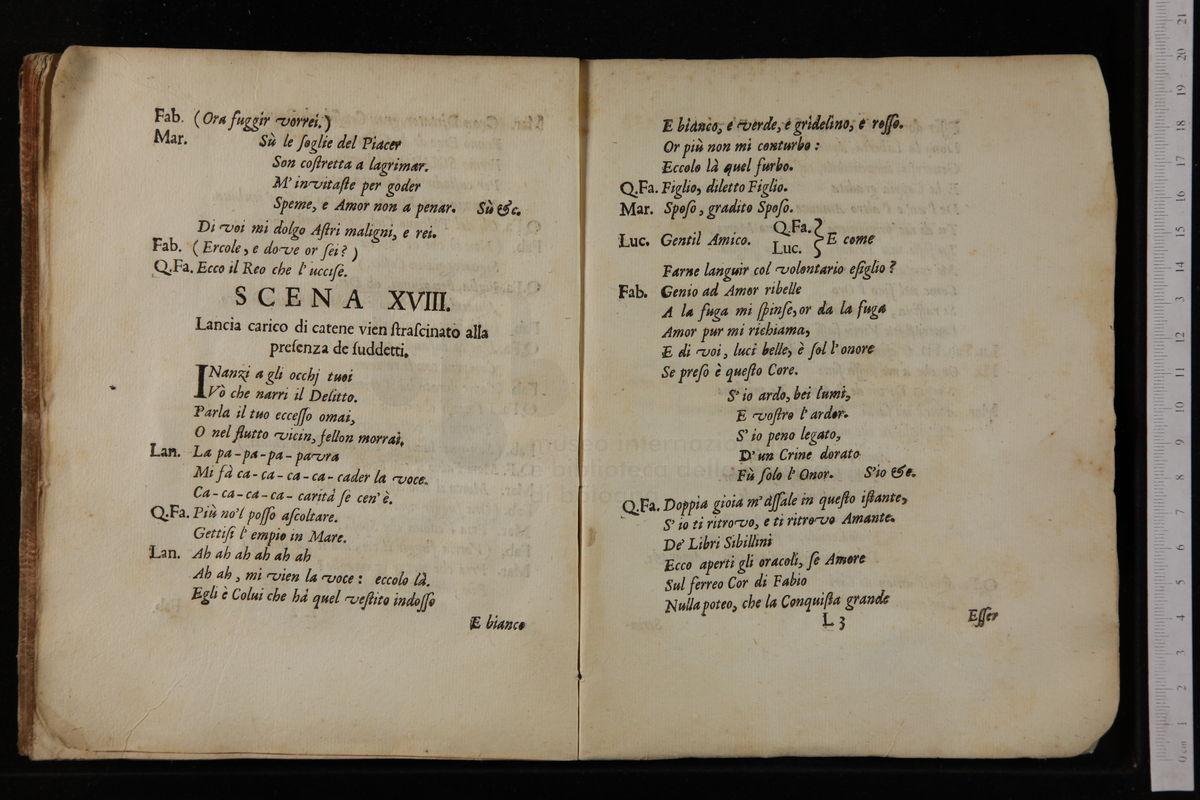 Fab. (Ora fuggir vorrei.)
Mar. Sù le ſoglie del Piacer
Son coſtretta a lagrimar.
M' invitaſte per goder
Speme, e Amor non a penar. Sù &c.
Di voi mi dolgo Aſtri maligni, e rei.
Fab. (Ercole, e dove or ſei?)
Q.Fa. Ecco il Reo che l' ucciſe.
SCENA XVIII.
Lancia carico di catene vien ſtraſcinato alla
preſenza de ſuddetti.
INanzi a gli occhj tuoi
Vò che narri il Delitto.
Parla il tuo ecceſſo omai,
O nel flutto vicin, fellon morrai.
Lan. La pa-pa-pa-pavra
Mi fà ca-ca-ca-ca-cader la voce.
Ca-ca-ca-ca-carità ſe cen' è.
Q.Fa. Più no'l poſſo aſcoltare.
Gettiſi l' empio in Mare.
Lan. Ah ah ah ah ah ah
Ah ah, mi vien la voce: eccolo là.
Egli è Colui che hà quel veſtito indoſſo
E bianco
E bianco, e verde, e gridelino, e roſſo.
Or più non mi conturbo:
Eccolo là quel furbo.
Q.Fa. Figlio, diletto Figlio.
Mar. Spoſo, gradito Spoſo.
Luc. Gentil Amico. Q.Fa. Luc. } E come
Farne languir col volontario eſiglio?
Fab. Genio ad Amor ribelle
A la fuga mi ſpinſe, or da la fuga
Amor pur mi richiama,
E di voi, luci belle, è ſol l' onore
Se preſo è queſto Core.
S' io ardo, bei lumi,
E voſtro l' ardor.
S' io peno legato,
D' un Crine dorato
Fù ſolo l' Onor. S'io &c.
Q.Fa. Doppia gioia m' aſſale in queſto iſtante,
S' io ti ritrovo, e ti ritrovo Amante.
De' Libri Sibillini
Ecco aperti gli oracoli, ſe Amore
Sul ferreo Cor di Fabio
Nulla poteo, che la Conquiſta grande
L 3 Eſſer
museo internazionale
e biblioteca della
di bologna
0 cm 1 2 3 4 5 6 7 8 9 10 11 12 13 14 15 16 17 18 19 20 21